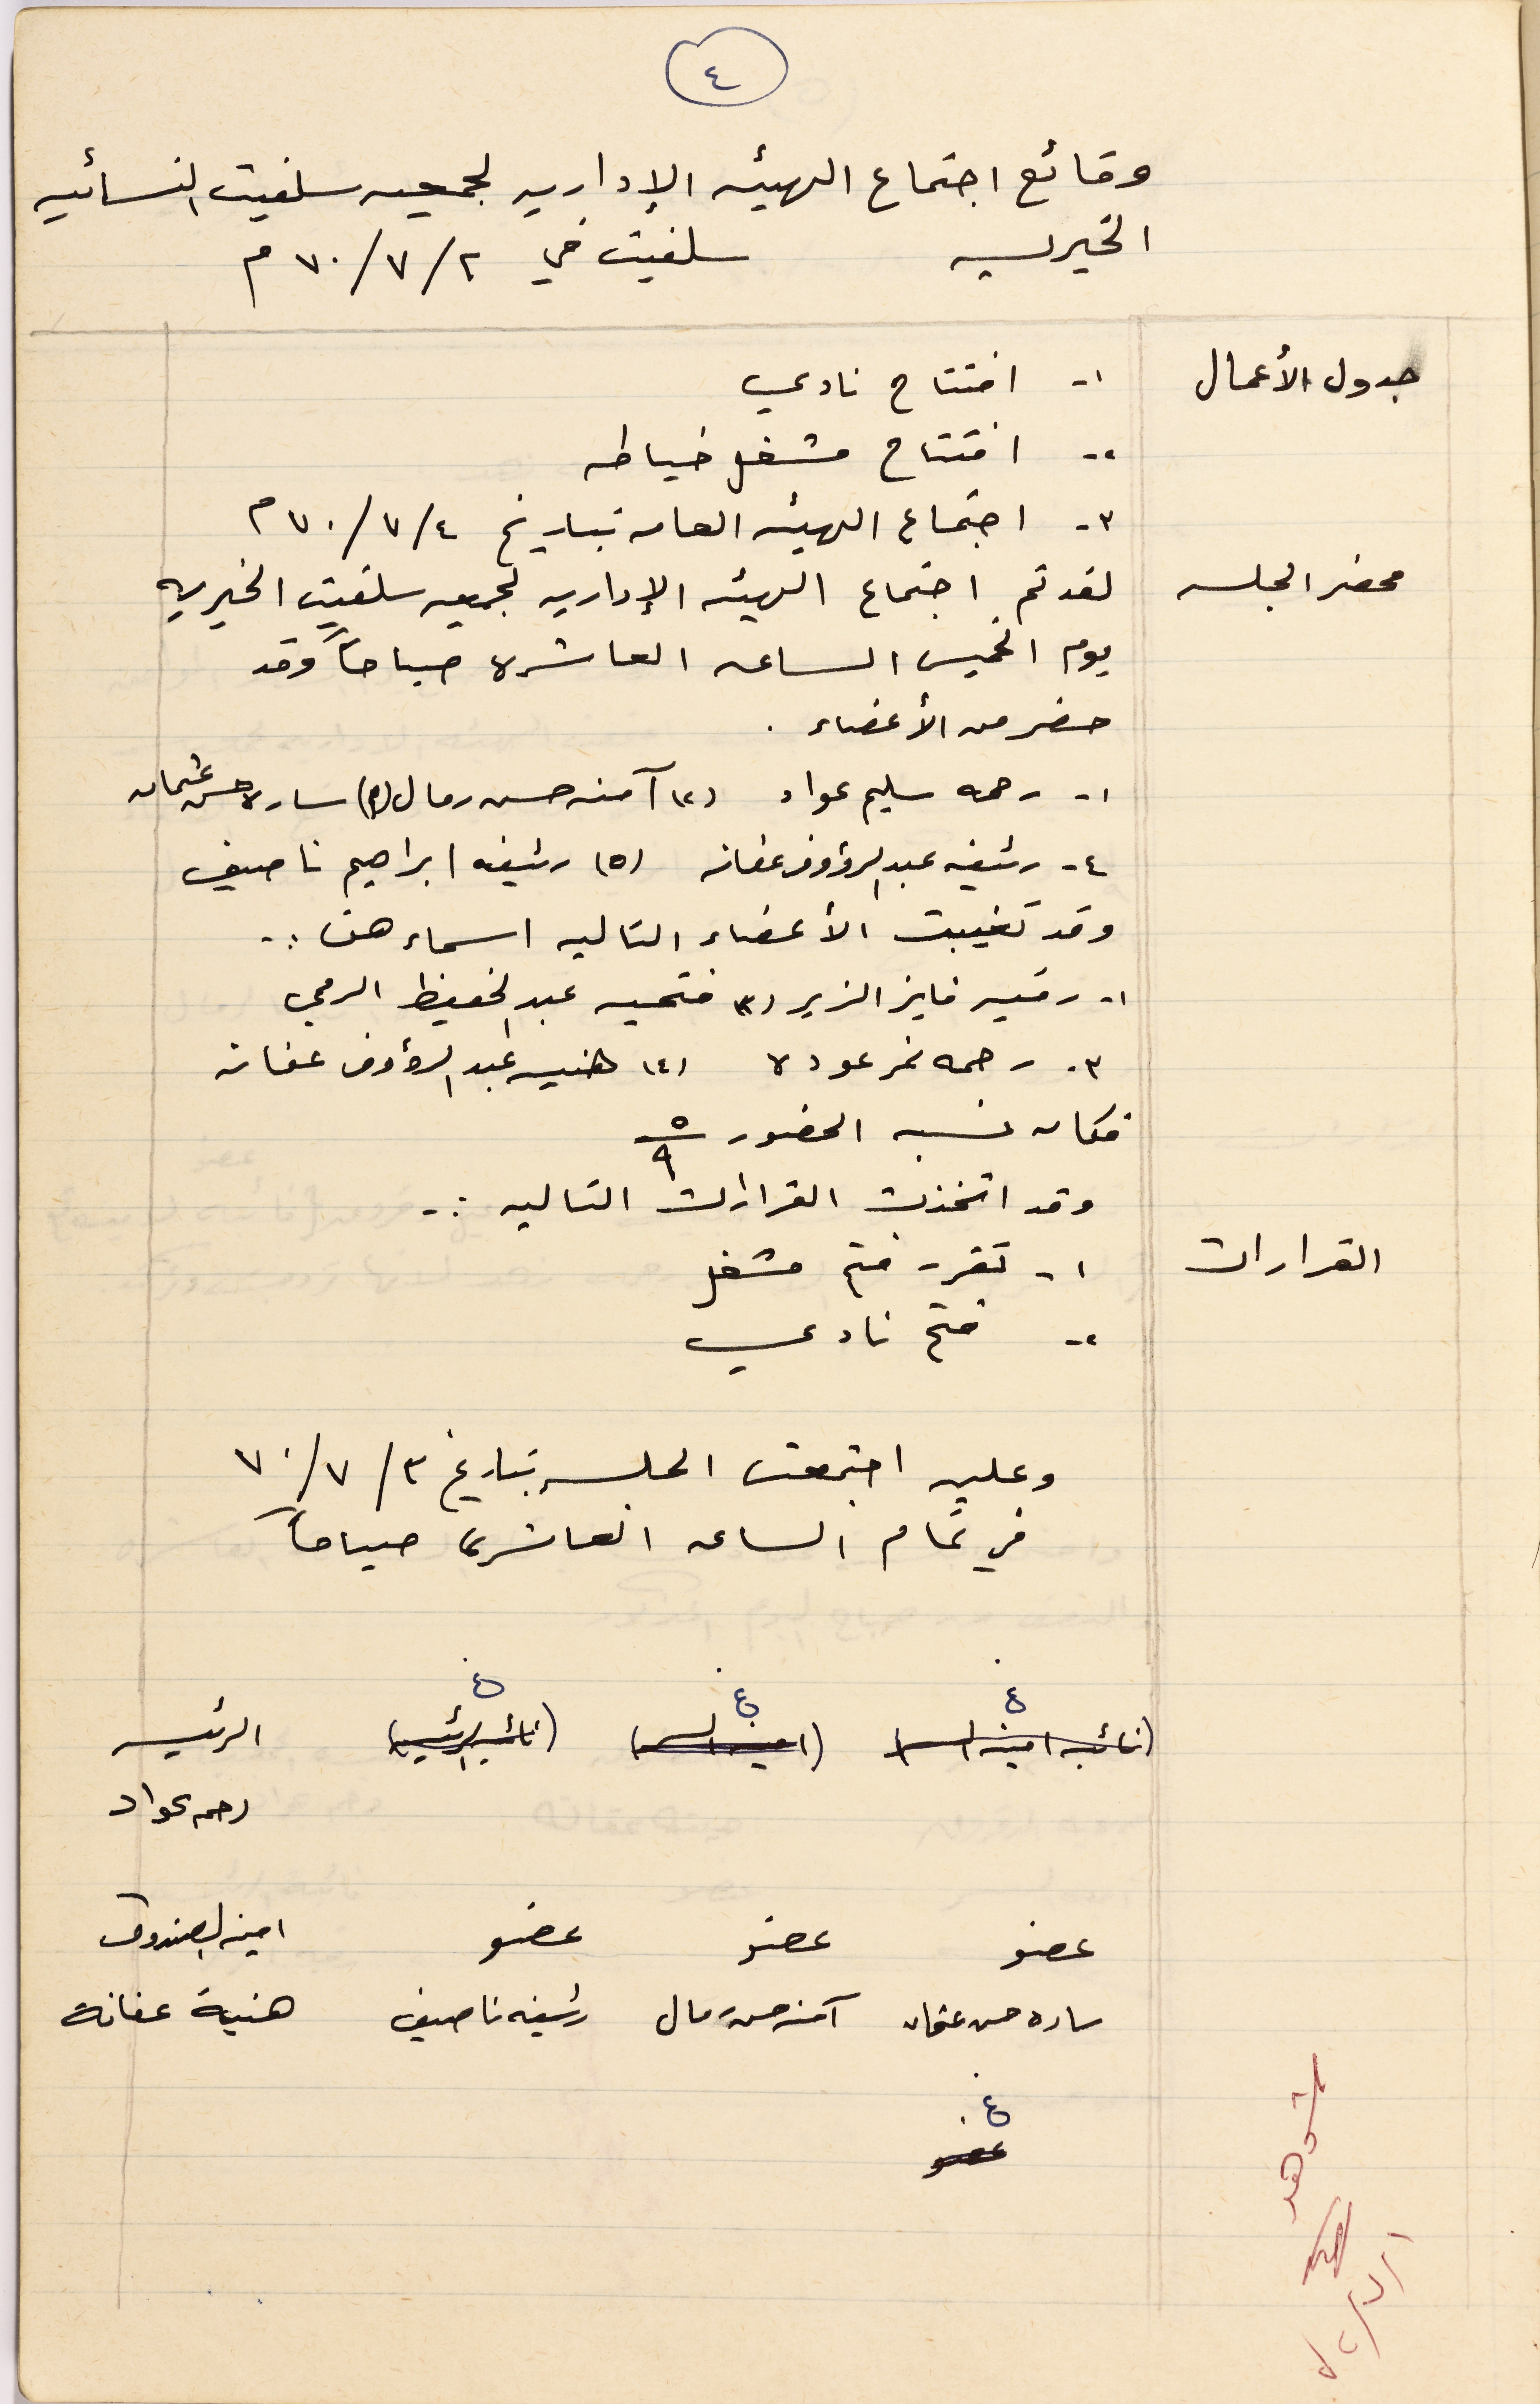 ٤
وقائع اجتماع الهيئه الإداريه لجمعيه سلفيت النسائيه
الخيريه سلفيت في ٢/٧/٧٠ م
جدول الأعمال ١- افتتاح نادي
٢- افتتاح مشغل خياطه
٣- اجتماع الهيئه العامه بتاريخ ٤/٧/٧٠ م
محضر الجلسه لقد تم اجتماع الهيئه الإداريه لجمعيه سلفيت الخيريه
يوم الخميس الساعه العاشره صباحاً وقد
حضر من الأعضاء .
١- رحمه سليم عواد (٢) آمنه حسن رمال (٣) ساره حسن عثمان
٤- رئيفه عبد الرؤوف عفانه (٥) رئيفه ابراهيم ناصيف
وقد تغيبت الأعضاء التاليه اسماءهن :-
١- رقيه فايز الزير (٢) فتحيه عبد الحفيظ الرمحي
٣- رحمه نمر عوده (٤) هنيه عبد الرؤوف عفانه
فكان نسبه الحضور ٥/٩
وقد اتخذت القرارات التاليه :-
القرارات ١- تقرر فتح مشغل
٢- فتح نادي
وعليه اجتمعت الجلسه بتاريخ ٣/٧/٧٠
في تمام الساعه العاشره صباحاً
غ غ غ
(نائبه امينه السر) (امينه السر) (نائبه الرئيسه) الرئيسه
رحمه عواد
عضو عضو عضو امينه الصندوق
ساره حسن عثمان آمنه حسن رمال رئيفه ناصيف هنية عفانة
غ
عضو